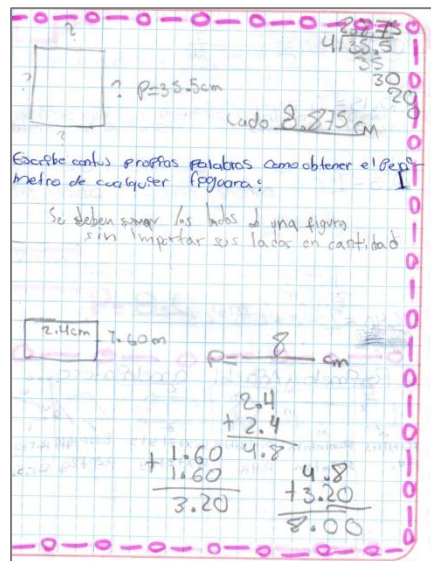 ?
? ? P=35.5cm
?
4 35.5
35
30
20
Lado 8.875 cm
Escribe contus propias palabras como obtener el Perí
metro de cualquier
Se deben sumar los lados d una figura
sin importar sus lados en cantidad
2.4cm 1.60m
P= 8 cm
2.4
+ 2.4
4.8
+ 1.60
1.60
3.20
4.8
+3.20
8.00